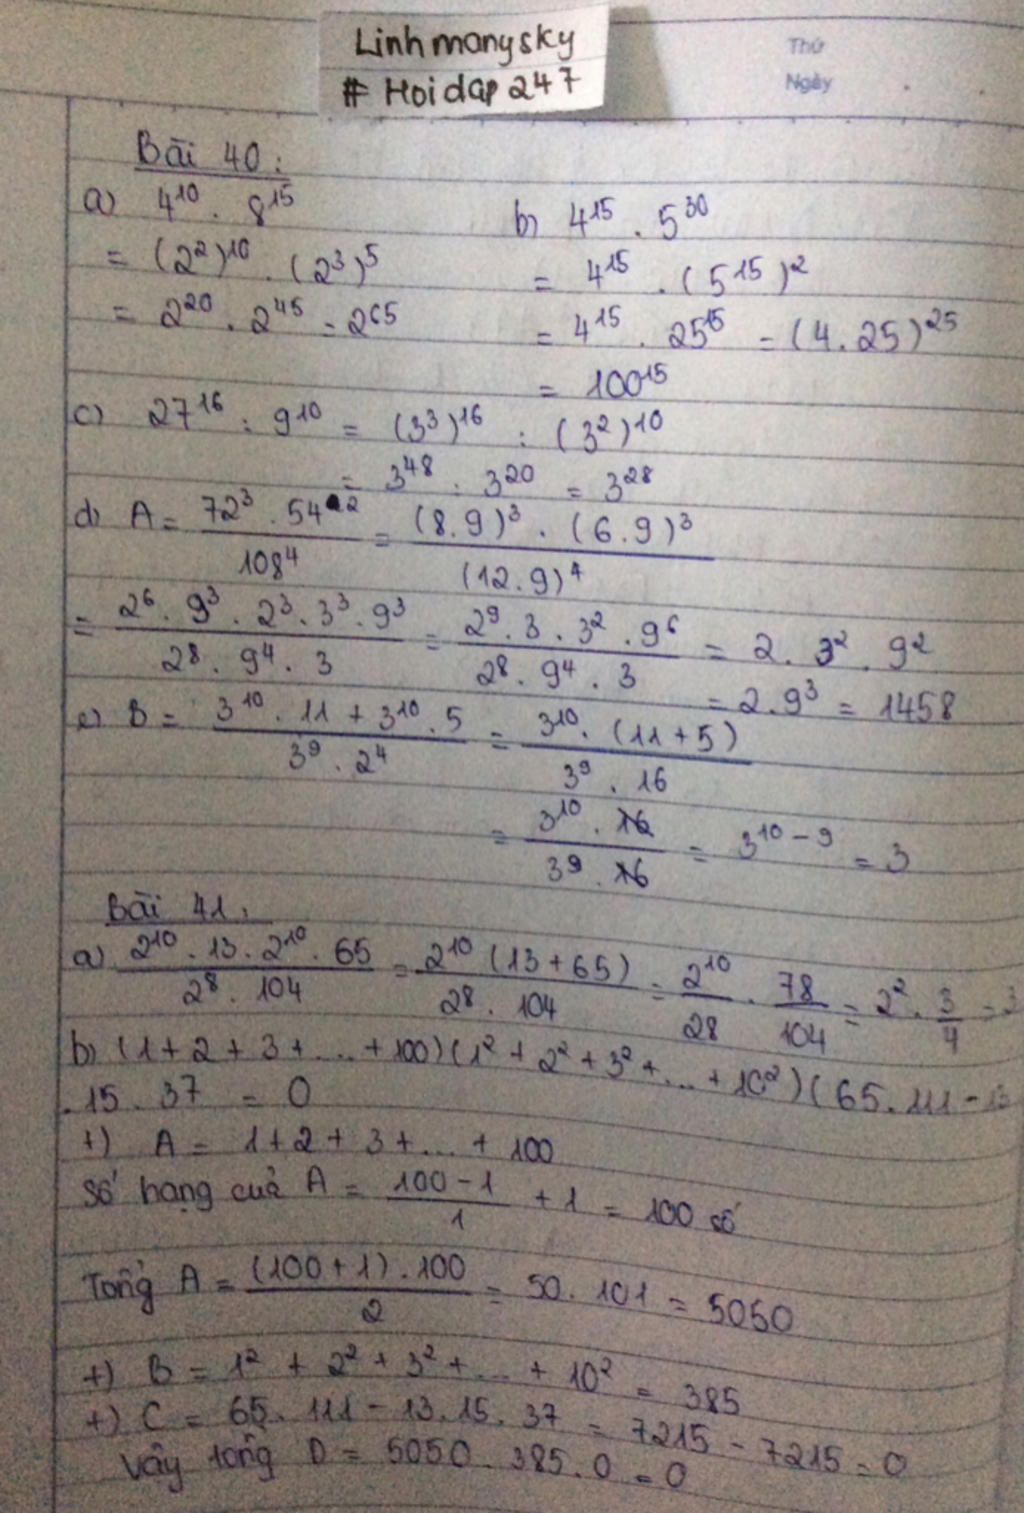 Linhmongsky
# Hoidap 247
Thứ
Ngày
Bài 40:
a) 4¹⁰ . 8¹⁵
= (2²)¹⁰ . (2³)⁵
= 2²⁰ . 2⁴⁵ = 2⁶⁵
b) 4¹⁵ . 5³⁰
= 4¹⁵ . (5¹⁵)²
= 4¹⁵ . 25¹⁵ = (4.25)²⁵
= 100¹⁵
c) 27¹⁶ : 9¹⁰ = (3³)¹⁶ : (3²)¹⁰
= 3⁴⁸ : 3²⁰ = 3²⁸
d) A = (72³ . 54²) / 108⁴ = ((8.9)³ . (6.9)³) / (12.9)⁴
= (2⁶ . 9³ . 2³ . 3³ . 9³) / (2⁸ . 9⁴ . 3) = (2⁹ . 3 . 3² . 9⁶) / (2⁸ . 9⁴ . 3) = 2 . 3² . 9²
= 2.9³ = 1458
e) B = (3¹⁰ . 11 + 3¹⁰ . 5) / (3⁹ . 2⁴) = (3¹⁰ . (11+5)) / (3⁹ . 16)
= (3¹⁰ . 16) / (3⁹ . 16) = 3¹⁰⁻⁹ = 3
Bài 41:
a) (2¹⁰ . 13 . 2¹⁰ . 65) / (2⁸ . 104) = (2¹⁰ (13+65)) / (2⁸ . 104) = 2¹⁰ / 2⁸ . 78 / 104 = 2² . 3/4 = 3
b) (1+2+3+...+100)(1²+2²+3²+...+10²)(65.111-13
.15.37 = 0
+) A = 1+2+3+...+100
số hạng của A = (100-1) / 1 + 1 = 100 số
Tổng A = ((100+1).100) / 2 = 50.101 = 5050
+) B = 1² + 2² + 3² + ... + 10² = 385
+) C = 65.111 - 13.15.37 = 7215 - 7215 = 0
Vậy tổng D = 5050.385.0 = 0